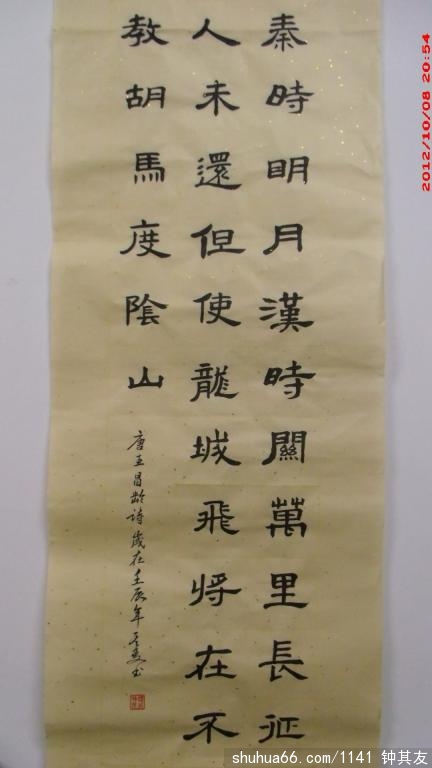 秦時明月漢時關萬里長征
人未還但使龍城飛將在不
教胡馬度陰山
唐王昌齡詩歲在壬辰年
2012/10/08 20:54
shuhua66.com/1141 钟其友